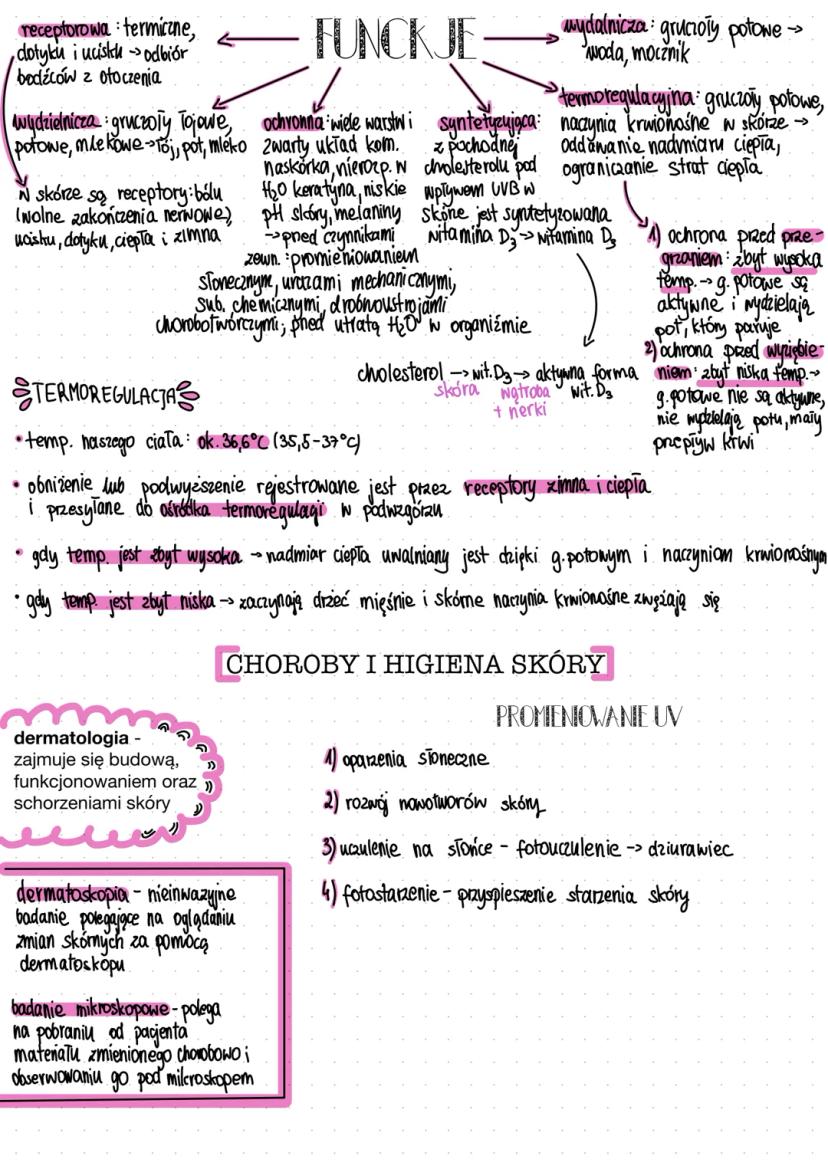 FUNCKJE
receptorowa: termiczne,
dotyku i ucisku → odbiór
bodźców z otoczenia
wydalnicza: gruczoły potowe →
woda, mocznik
wydzielnicza: gruczoły łojowe,
potowe, mlekowe → łój, pot, mleko
W skórze są receptory: bólu
(wolne zakończenia nerwowe),
ucisku, dotyku, ciepła i zimna
ochronna: wiele warstw i
zwarty układ kom.
naskórka, nierozp. w
H₂O keratyna, niskie
pH skóry, melaniny
→ przed czynnikami
zewn.: promieniowaniem
słonecznym, urazami mechanicznymi,
sub. chemicznymi, drobnoustrojami
chorobotwórczymi; przed utratą H₂O w organiźmie
syntetyzująca:
z pochodnej
cholesterolu pod
wpływem UVB w
skórze jest syntetyzowana
witamina D₃ → witamina D₃
cholesterol → wit. D₃ → aktywna forma
wit. D₃
skóra wątroba
+ nerki
termoregulacyjna: gruczoły potowe,
naczynia krwionośne w skórze →
oddawanie nadmiaru ciepła,
ograniczanie strat ciepła
1) ochrona przed prze-
grzaniem: zbyt wysoka
temp. → g. potowe są
aktywne i wydzielają
pot, który paruje
2) ochrona przed wyziębie-
niem: zbyt niska temp. →
g. potowe nie są aktywne,
nie wydzielają potu, mały
przepływ krwi
TERMOREGULACJA
• temp. naszego ciała: ok. 36,6°C (35,5-37°C)
• obniżenie lub podwyższenie rejestrowane jest przez receptory zimna i ciepła
i przesyłane do ośrodka termoregulacji w podwzgórzu
• gdy temp. jest zbyt wysoka → nadmiar ciepła uwalniany jest dzięki g. potowym i naczyniom krwionośnym
• gdy temp. jest zbyt niska → zaczynają drżeć mięśnie i skórne naczynia krwionośne zwężają się
CHOROBY I HIGIENA SKÓRY
dermatologia -
zajmuje się budową,
funkcjonowaniem oraz
schorzeniami skóry
PROMIENIOWANIE UV
1) oparzenia słoneczne
2) rozwój nowotworów skóry
3) uczulenie na słońce - fotouczulenie → dziurawiec
4) fotostarzenie - przyspieszenie starzenia skóry
dermatoskopia - nieinwazyjne
badanie polegające na oglądaniu
zmian skórnych za pomocą
dermatoskopu
badanie mikroskopowe - polega
na pobraniu od pacjenta
materiału zmienionego chorobowo i
obserwowaniu go pod mikroskopem